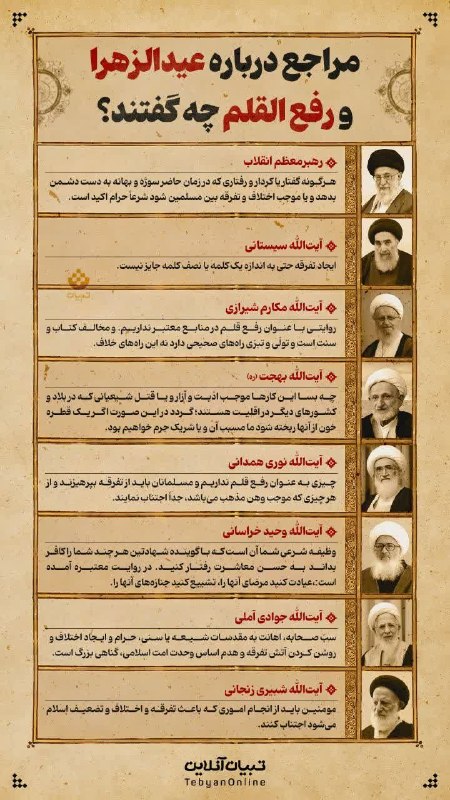 مراجع درباره عیدالزهرا
و رفع القلم چه گفتند؟
رهبر معظم انقلاب
هرگونه گفتار یا کردار و رفتاری که در زمان حاضر سوژه و بهانه به دست دشمن
بدهد و یا موجب اختلاف و تفرقه بین مسلمین شود شرعاً حرام اکید است.
آیت‌الله سیستانی
ایجاد تفرقه حتی به اندازه یک کلمه یا نصف کلمه جایز نیست.
تبیان
آیت‌الله مکارم شیرازی
روایتی با عنوان رفع قلم در منابع معتبر نداریم. و مخالف کتاب و
سنت است و تولّی و تبرّی راه‌های صحیحی دارد نه این راه‌های خلاف.
آیت‌الله بهجت (ره)
چه بسا این کارها موجب اذیت و آزار و یا قتل شیعیانی که در بلاد و
کشورهای دیگر در اقلیت هستند؛ گردد در این صورت اگر یک قطره
خون از آنها ریخته شود ما مسبب آن و یا شریک جرم خواهیم بود.
آیت‌الله نوری همدانی
چیزی به عنوان رفع قلم نداریم و مسلمانان باید از تفرقه بپرهیزند و از
هر چیزی که موجب وهن مذهب می‌باشد، جداً اجتناب نمایند.
آیت‌الله وحید خراسانی
وظیفه شرعی شما آن است که با گوینده شهادتین هر چند شما را کافر
بداند به حسن معاشرت رفتار کنید. در روایت معتبره آمده
است:،عیادت کنید مرضای آنها را، تشییع کنید جنازه‌های آنها را.
آیت‌الله جوادی آملی
سبّ صحابه، اهانت به مقدسات شیعه یا سنی، حرام و ایجاد اختلاف و
روشن کردن آتش تفرقه و هدم اساس وحدت امت اسلامی، گناهی بزرگ است.
آیت‌الله شبیری زنجانی
مومنین باید از انجام اموری که باعث تفرقه و اختلاف و تضعیف اسلام
می‌شود اجتناب کنند.
تبیان آنلاین
TebyanOnline